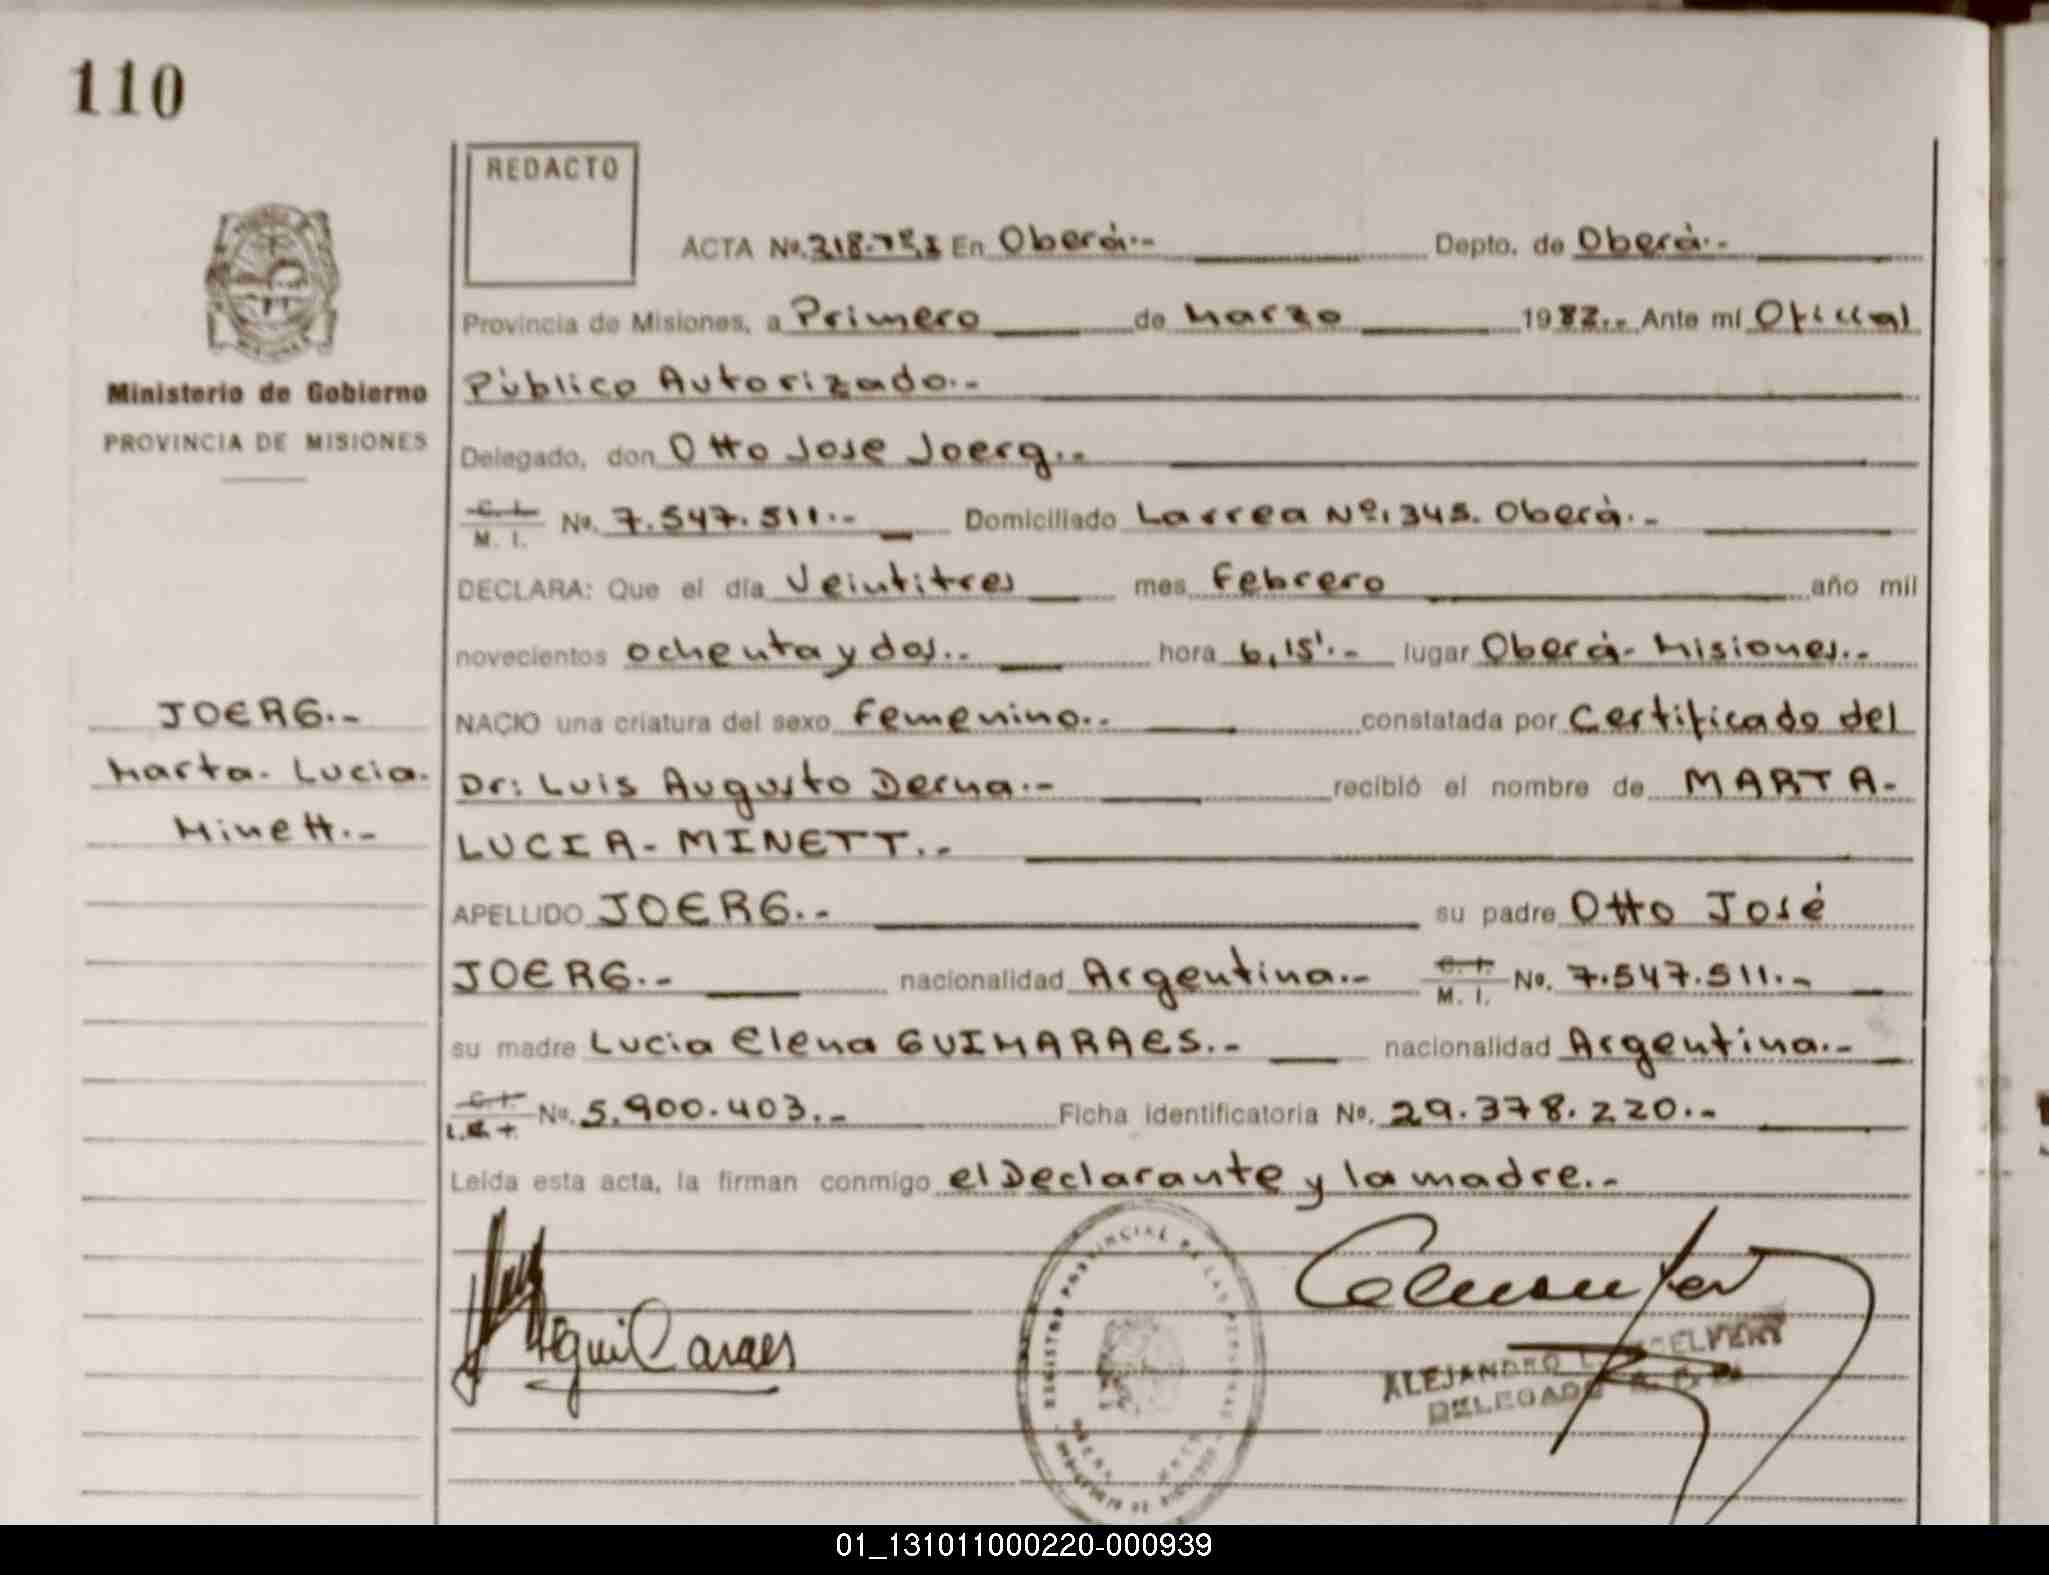 110
REDACTO
ACTA No. 218. En Oberá.- Depto. de Oberá.-
Provincia de Misiones, a Primero de Marzo 1982.- Ante mí Oficial
Público Autorizado.-
Ministerio de Gobierno
PROVINCIA DE MISIONES
Delegado, don Otto Jose Joerg.-
C. I. M. I. No. 7.547.511.- Domiciliado Larrea Nº 1345. Oberá.-
DECLARA: Que el día Veintitres mes Febrero año mil
novecientos ochenta y dos.- hora 6,15'.- lugar Oberá- Misiones.-
JOERG.-
Marta. Lucia.
Minett.-
NACIO una criatura del sexo Femenino.- constatada por Certificado del
Dr: Luis Augusto Derna.- recibió el nombre de MARTA-
LUCIA- MINETT.-
APELLIDO JOERG.- su padre Otto José
JOERG.- nacionalidad Argentina.- C. I. M. I. No. 7.547.511.-
su madre Lucia Elena GUIMARAES.- nacionalidad Argentina.-
C. I. No. 5.900.403.- Ficha identificatoria No. 29.378.220.-
Leída esta acta, la firman conmigo el Declarante y la madre.-
REGISTRO PROVINCIAL DE LAS PERSONAS
ALEJANDRO L.
DELEGADO
01_131011000220-000939